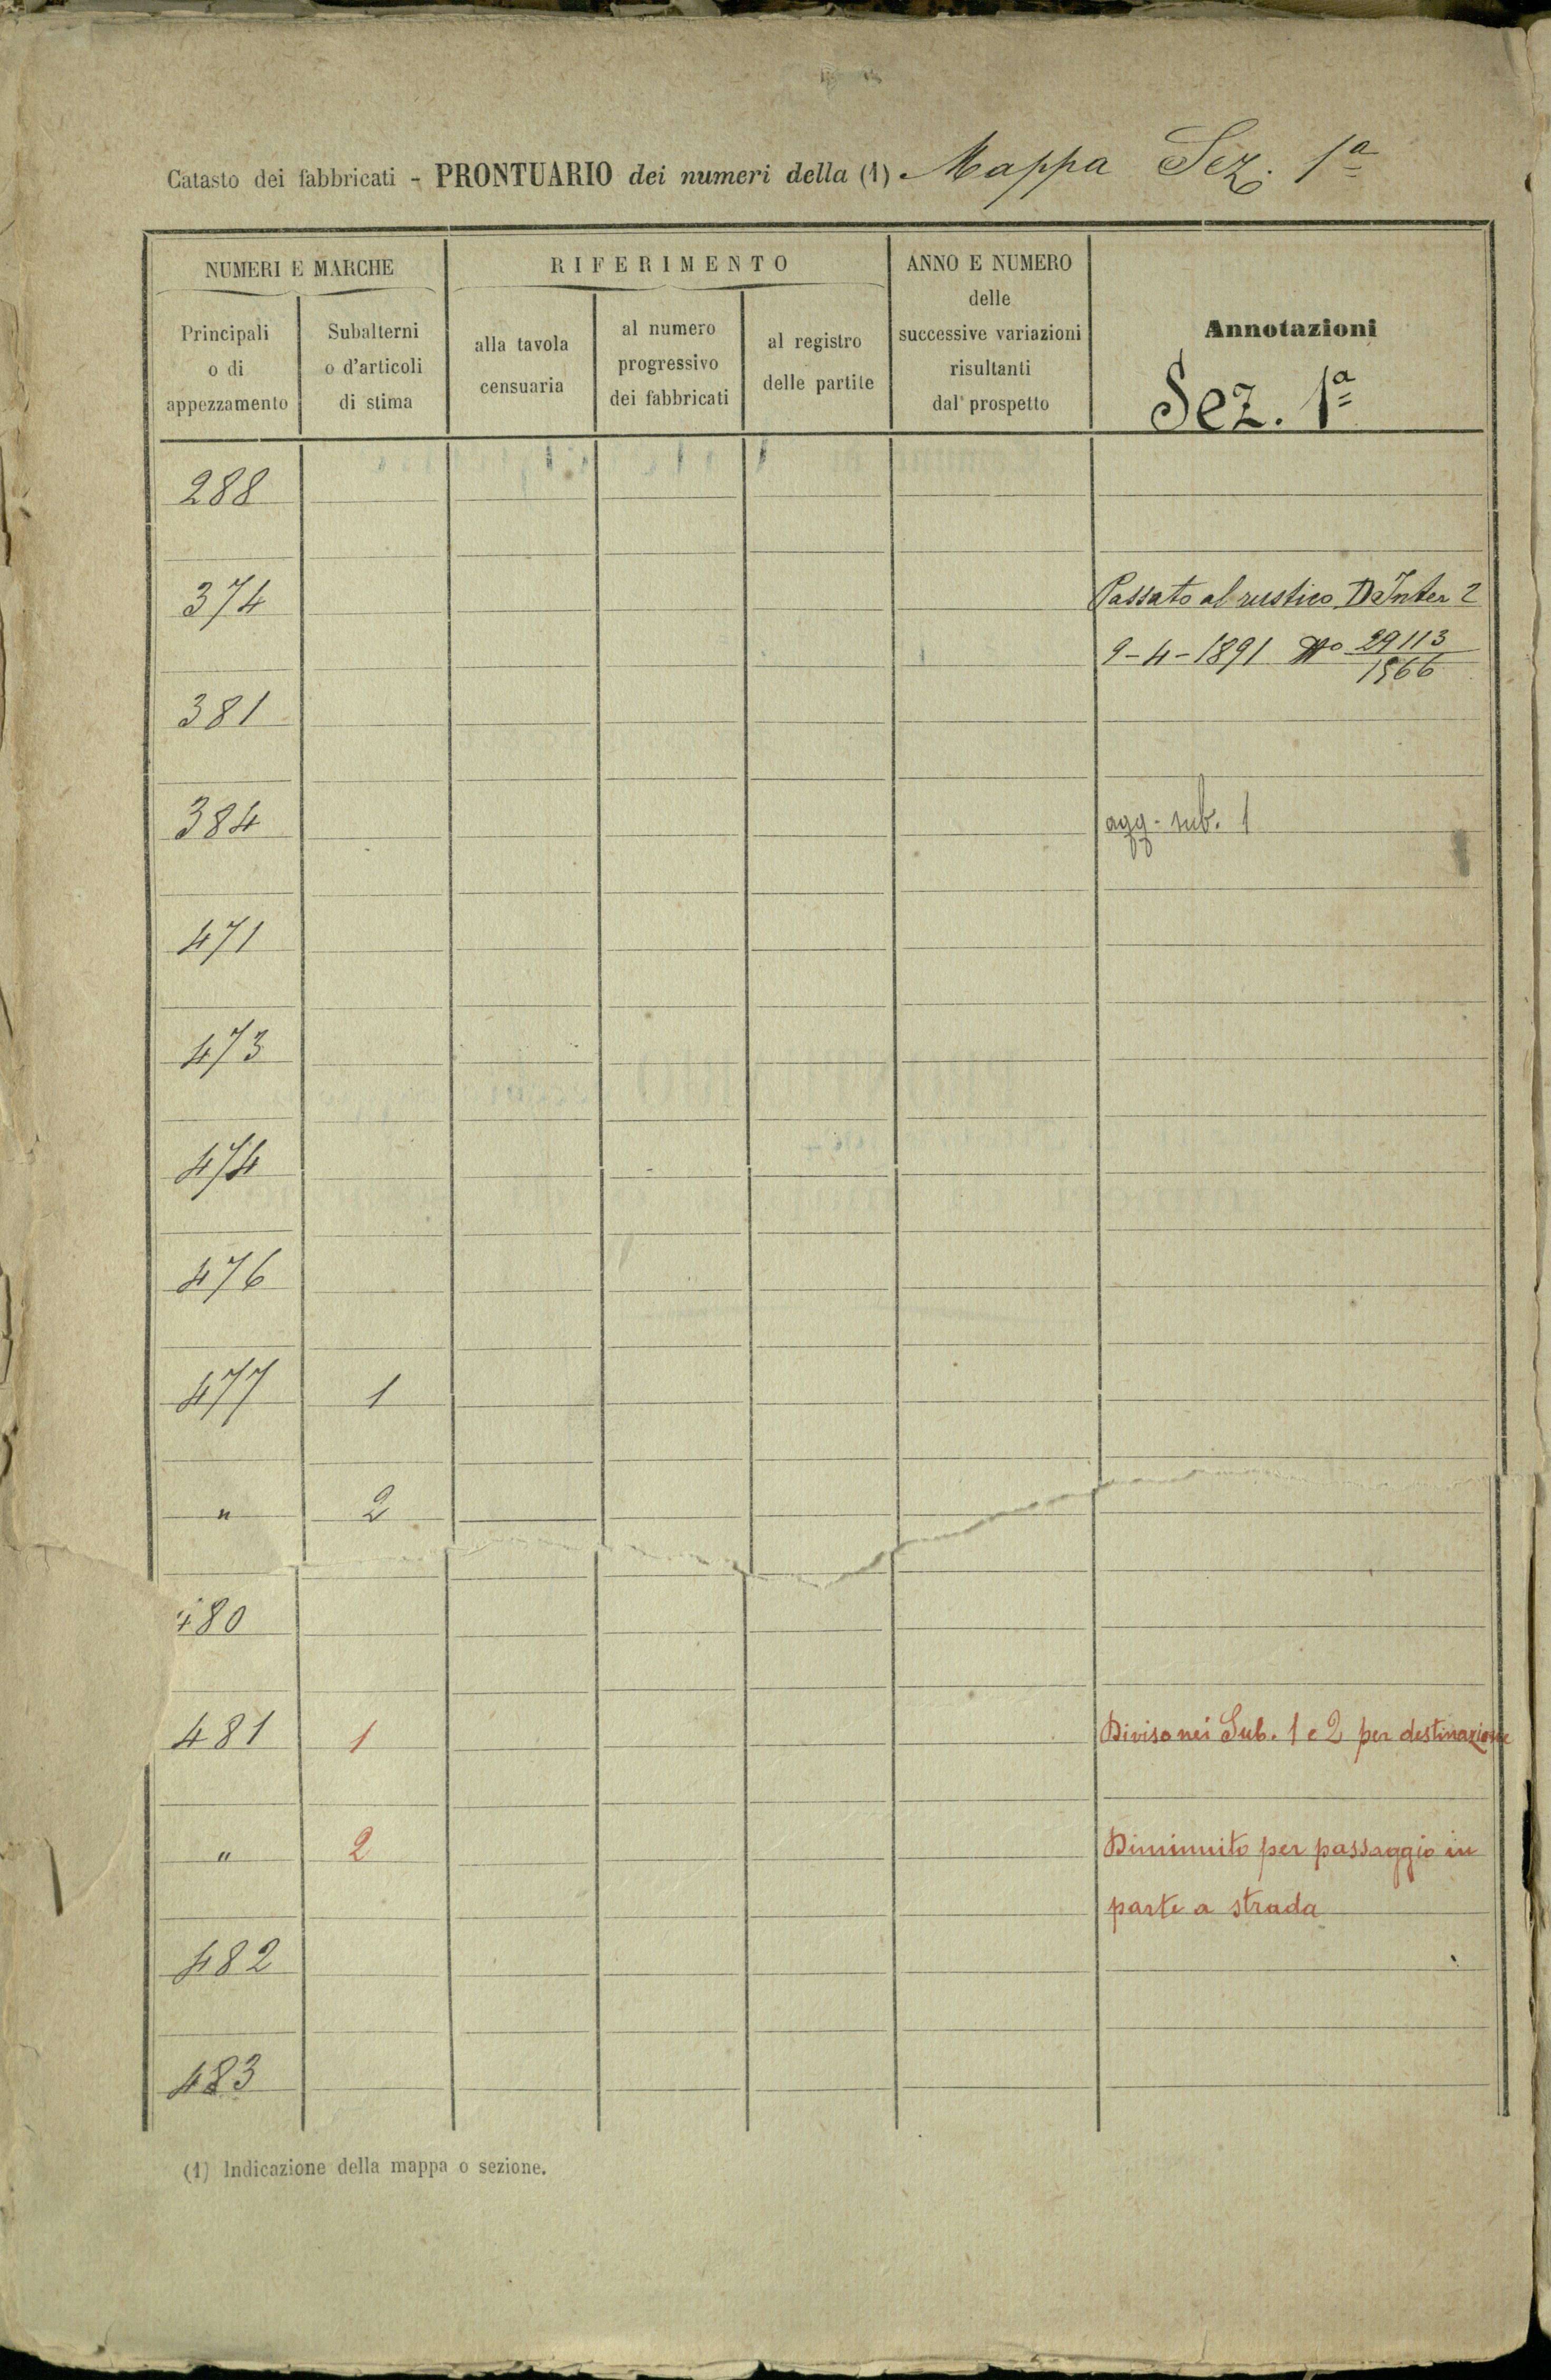 Catasto dei fabbricati - PRONTUARIO dei numeri della (1) Mappa Sez. 1ª
NUMERI E MARCHE
Principali
o di
appezzamento
Subalterni
o d'articoli
di stima
RIFERIMENTO
alla tavola
censuaria
al numero
progressivo
dei fabbricati
al registro
delle partite
ANNO E NUMERO
delle
successive variazioni
risultanti
dal prospetto
Annotazioni
Sez. 1ª
288
374 Passato al rustico D. Inter 2
9-4-1891 No 29113
1566
381
384 agg. sub. 1
471
473
474
476
477 1
" 2
480
481 1 Diviso nei Sub. 1 e 2 per destinazione
" 2 Diminuito per passaggio in
parte a strada
482
483
(1) Indicazione della mappa o sezione.